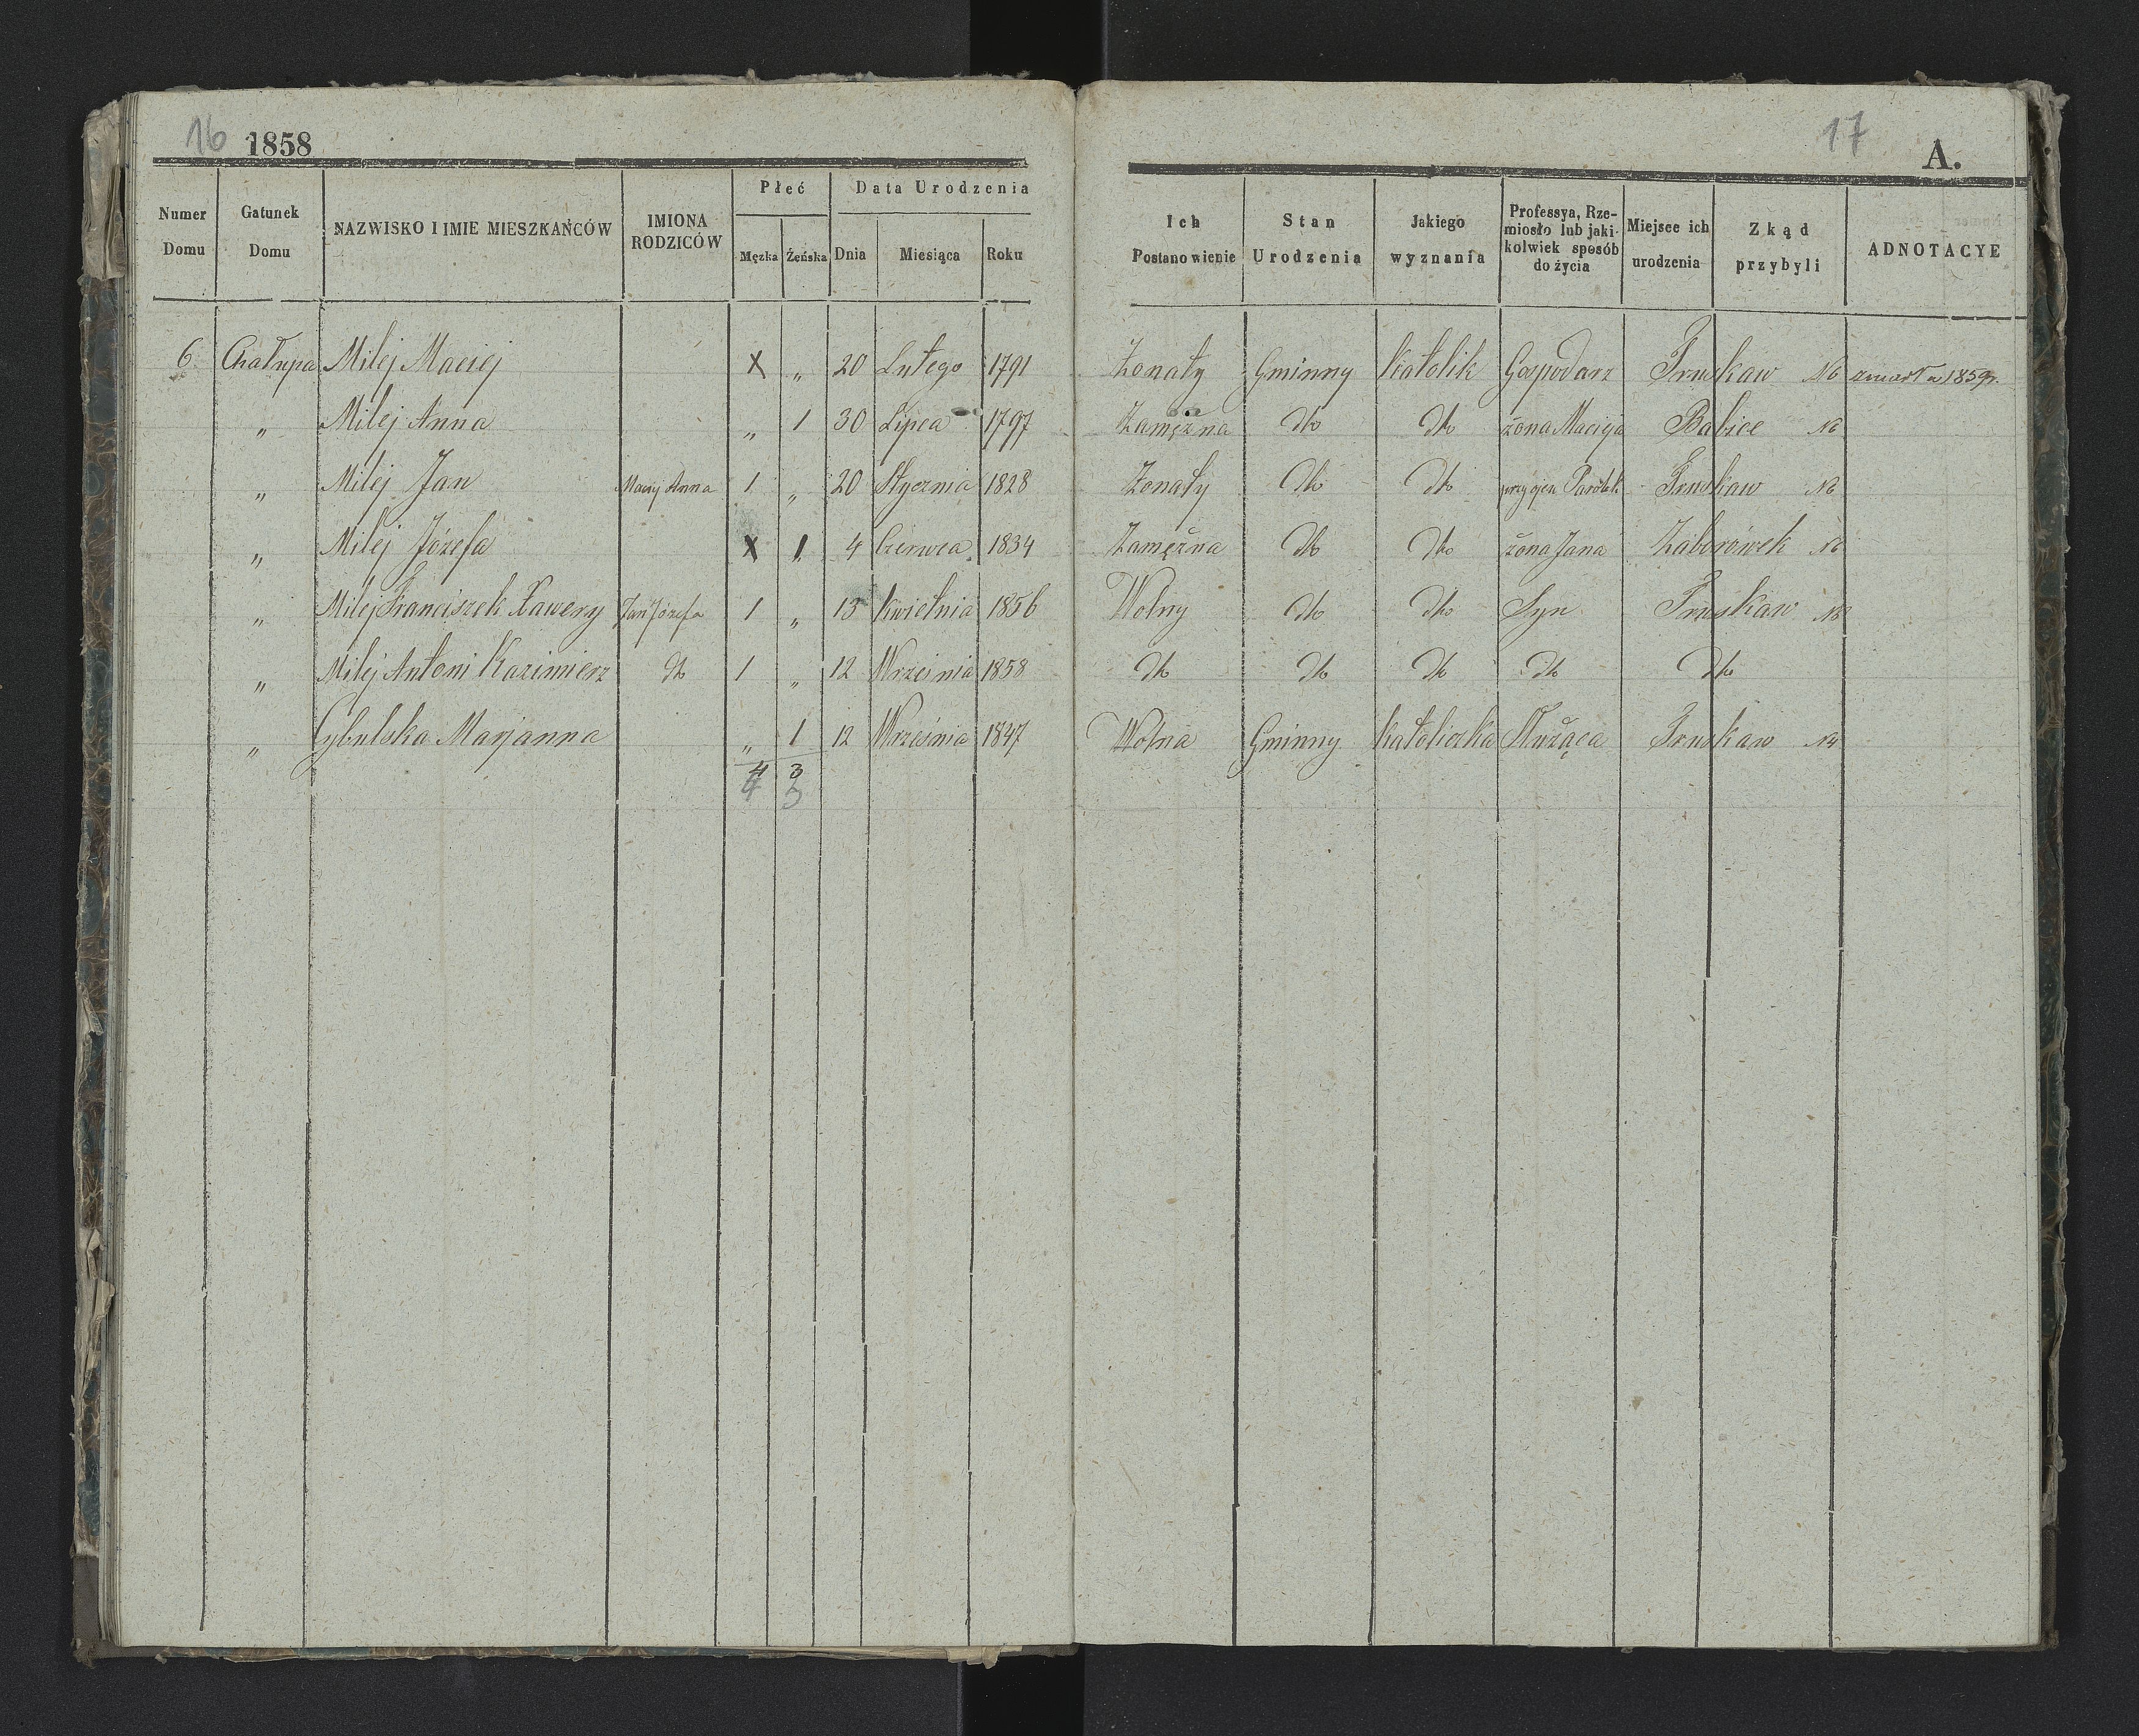 16 1858
17
A.
Numer Domu
Gatunek Domu
NAZWISKO I IMIE MIESZKAŃCÓW
IMIONA RODZICÓW
Płeć
Męzka Żeńska
Data Urodzenia
Dnia Miesiąca Roku
Ich Postanowienie
Stan Urodzenia
Jakiego wyznania
Professya, Rzemiosło lub jakikolwiek sposób do życia
Miejsce ich urodzenia
Zkąd przybyli
ADNOTACYE
6 Chałupa Milej Maciej X „ 20 Lutego 1791 Żonaty Gminny Katolik Gospodarz Truskaw N6 zmarł w 1859 r.
„ Milej Anna „ 1 30 Lipca 1797 Zamężna dto dto żona Macieja Babice N6
„ Milej Jan Maciej Anna 1 „ 20 Stycznia 1828 Żonaty dto dto przy ojcu Parobek Truskaw N6
„ Milej Józefa X 1 4 Czerwca 1834 Zamężna dto dto żona Jana Zaborówek N6
„ Milej Franciszek Xawery Jan Józefa 1 „ 13 Kwietnia 1856 Wolny dto dto Syn Truskaw N6
„ Milej Antoni Kazimierz dto 1 „ 12 Września 1858 dto dto dto dto dto
„ Cybulska Marjanna „ 1 12 Września 1847 Wolna Gminny Katoliczka Służąca Truskaw N4
4 3
4 3